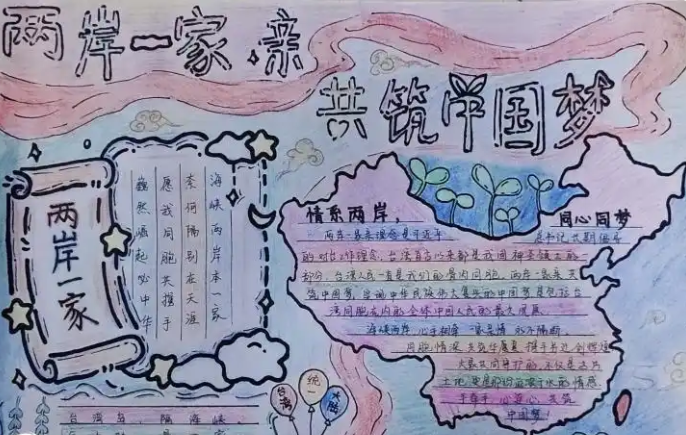 两岸一家亲
共筑中国梦
两岸一家
海峡两岸本一家
奈何隔别在天涯
愿我同胞共携手
巍然崛起必中华
情系两岸，
同心同梦
两岸一家亲理念是习近平
总书记长期倡导
的对台工作理念，台湾自古以来都是我国神圣领土的一
部分，台湾人民一直是我们的骨肉同胞，两岸一家亲，共
筑中国梦，
湾同胞在内的全体中国人民的最大愿景
海峡两岸，心手相牵
同胞情深，共筑华夏
土地
手牵手，心连心，共筑
中国梦！
台湾
统一
大陆
台湾岛，隔海峡，